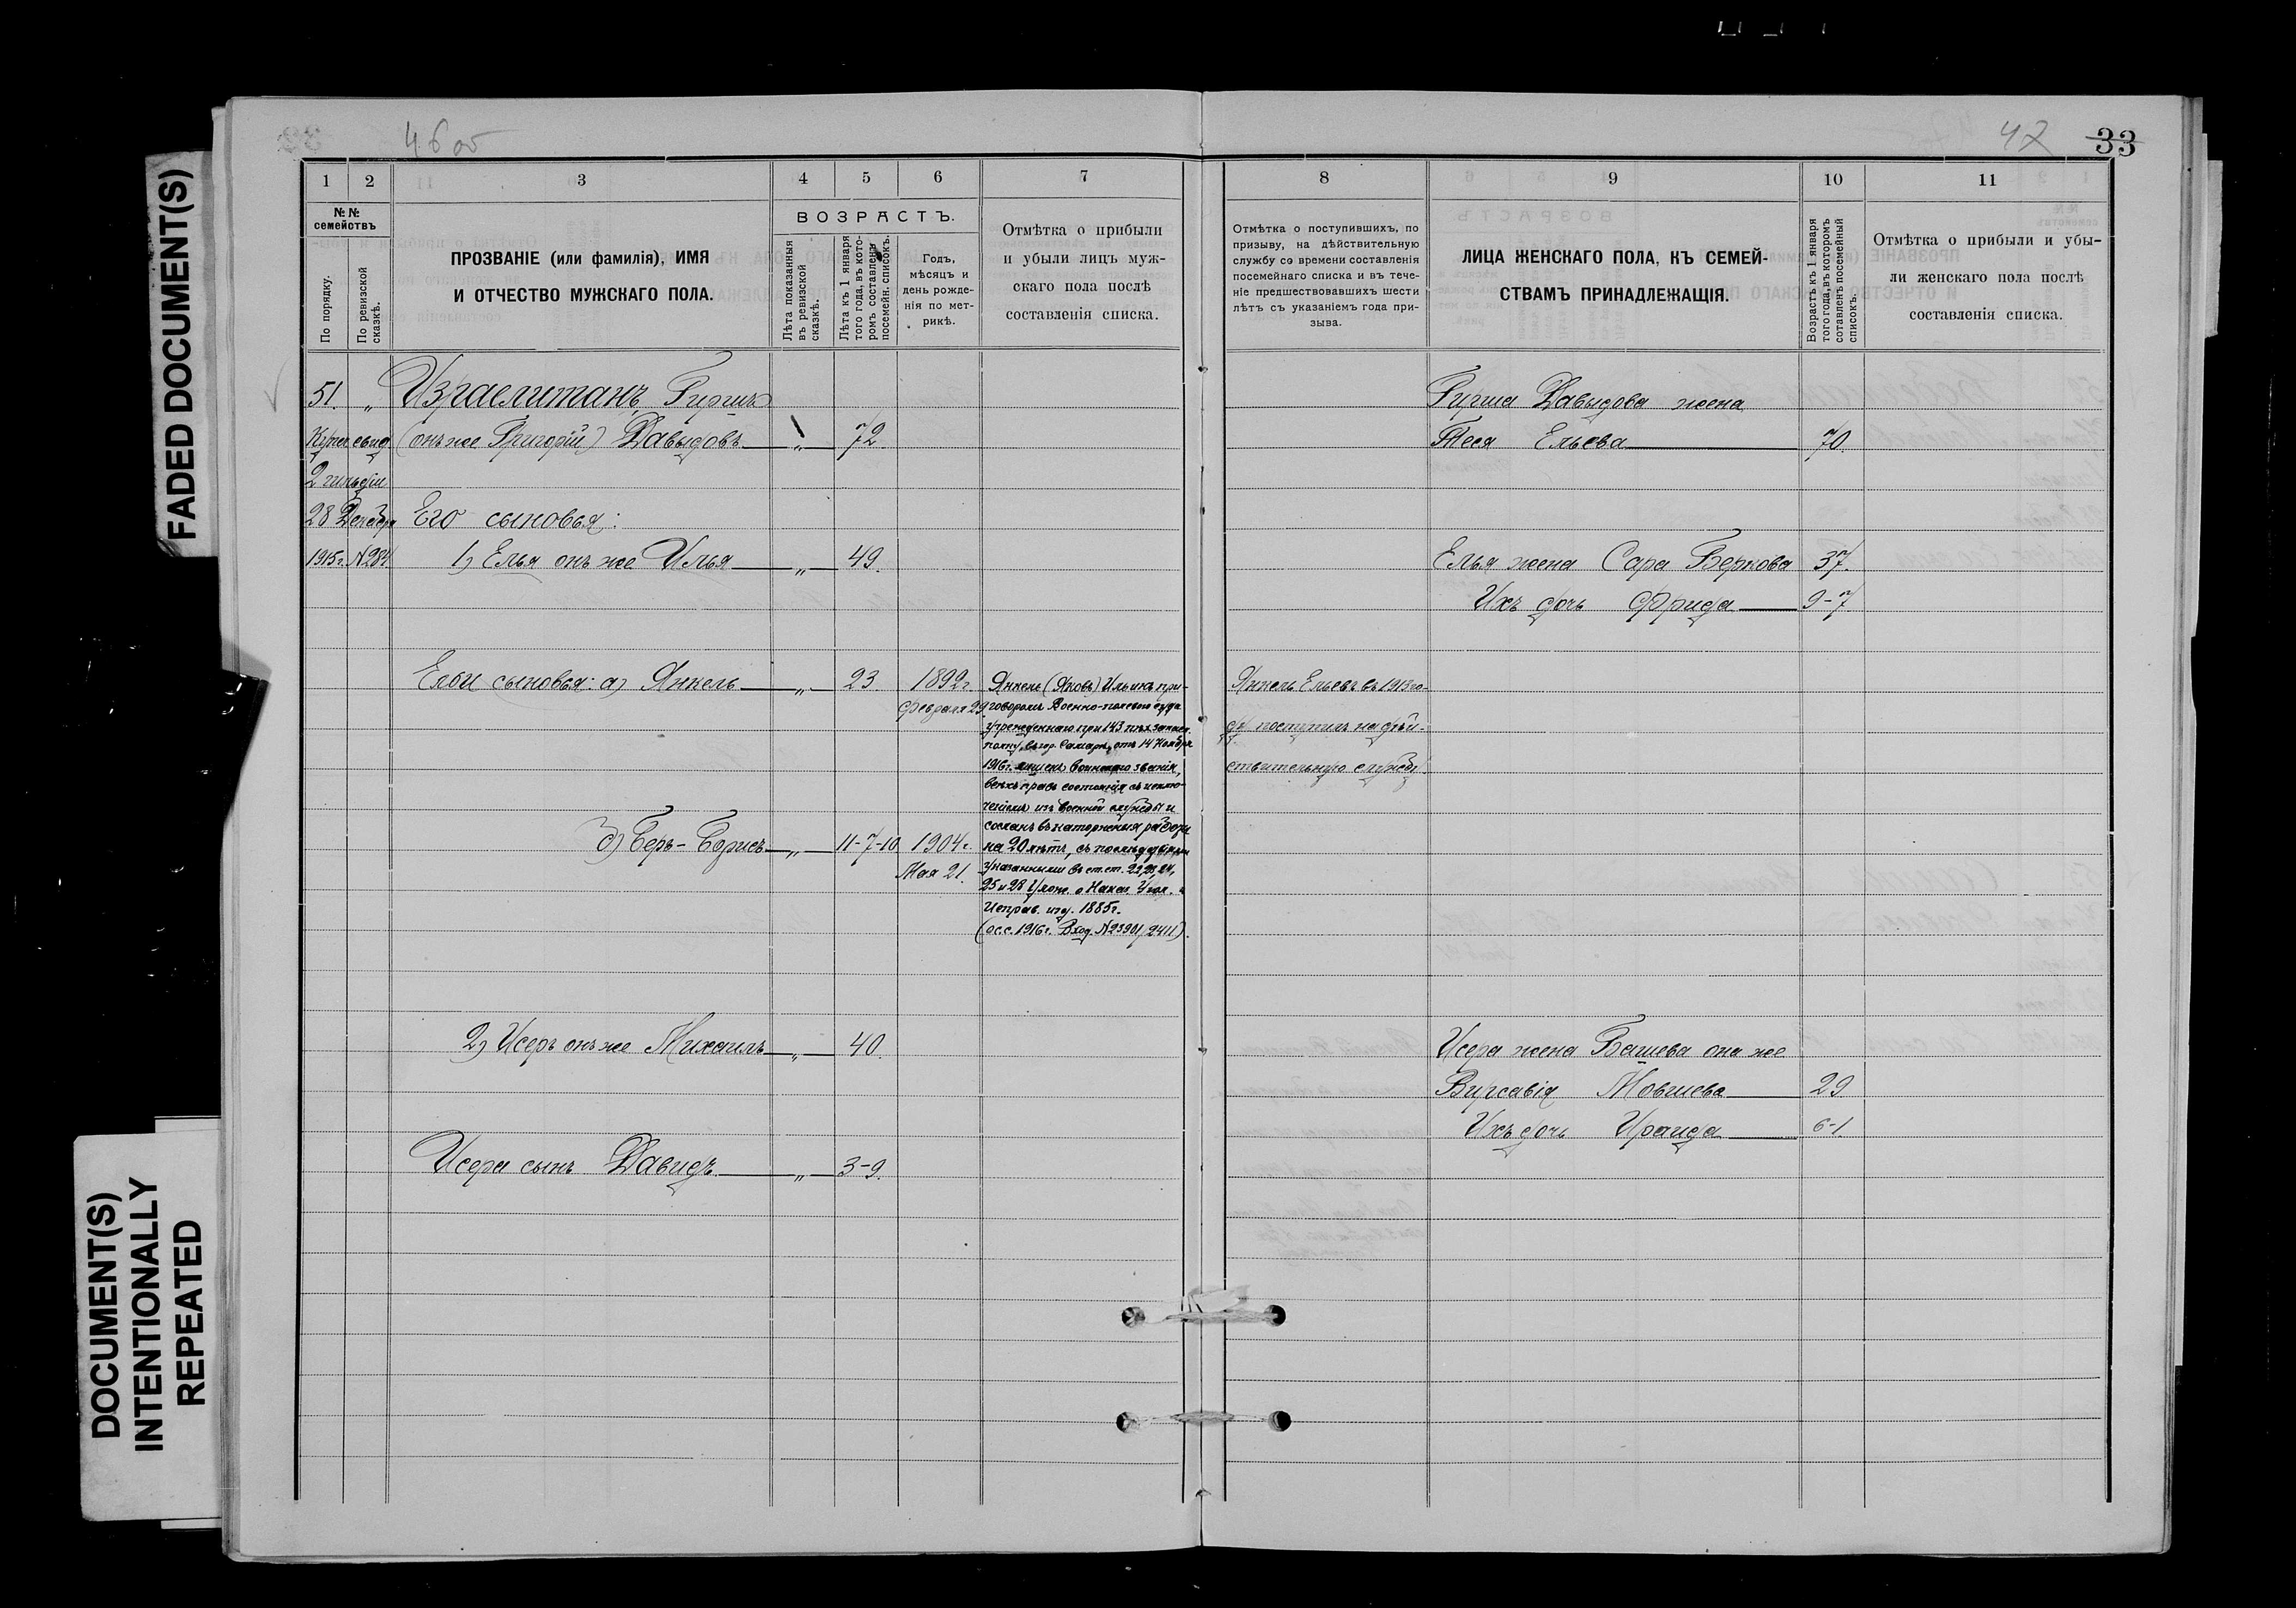 FADED DOCUMENT(S)
DOCUMENT(S)
INTENTIONALLY
REPEATED
46 об
1
2
3
4
5
6
7
№№
семействъ
По порядку.
По ревизской
сказкѣ.
ПРОЗВАНІЕ (или фамилія), ИМЯ
И ОТЧЕСТВО МУЖСКАГО ПОЛА.
ВОЗРАСТЪ.
Лѣта показанныя
въ ревизской
сказкѣ.
Лѣта къ 1 января
того года, въ кото-
ромъ составленъ
посемейн. списокъ.
Годъ,
мѣсяцъ и
день рожде-
нія по мет-
рикѣ.
Отмѣтка о прибыли
и убыли лицъ муж-
скаго пола послѣ
составленія списка.
51. " Израелитанъ Гиршъ
Купеч. свид. (онъ же Григорій) Давыдовъ " 72.
2 гильдіи
28 Декабря Его сыновья:
1915г. №284 1) Елья онъ же Илья " 49.
Ельи сыновья: а) Янкель " 23. 1892г.
Февраля 29.
Янкель (Яковъ) Ильинъ при-
говоромъ Военно-полевого суда
учрежденнаго при 143 пѣх. запасн.
полку, въ гор. Самарѣ, отъ 14 Ноября
1916г. лишенъ воинскаго званія,
всѣхъ правъ состоянія съ исклю-
ченіемъ изъ военной службы и
сосланъ въ каторжныя работы
на 20 лѣтъ, съ послѣдствіями
указанными въ ст.ст. 22, 23, 24,
25 и 28 Улож. о Наказ. Угол. и
Исправ. изд. 1885г.
(ос.с. 1916г. Вход. №23901/2411).
б) Беръ-Борисъ " 11-7-10 1904г.
Мая 21.
2) Исеръ онъ же Михаилъ " 40.
Исера сынъ Давидъ " 3-9.
47 33
8
9
10
11
Отмѣтка о поступившихъ, по
призыву, на дѣйствительную
службу со времени составленія
посемейнаго списка и въ тече-
ніе предшествовавшихъ шести
лѣтъ съ указаніемъ года при-
зыва.
ЛИЦА ЖЕНСКАГО ПОЛА, КЪ СЕМЕЙ-
СТВАМЪ ПРИНАДЛЕЖАЩІЯ.
Возрастъ къ 1 января
того года, въ которомъ
составленъ посемейный
списокъ.
Отмѣтка о прибыли и убы-
ли женскаго пола послѣ
составленія списка.
Гирша Давыдова жена
Тася Ельева 70.
Елья жена Сара Беркова 37.
Ихъ дочь Фрида 9-7
Янкель Ельевъ въ 1913 го-
ду поступилъ на дѣй-
ствительную службу.
Исера жена Башева она же
Вирсавія Мовшева 29
Ихъ дочь Ираида 6-1.